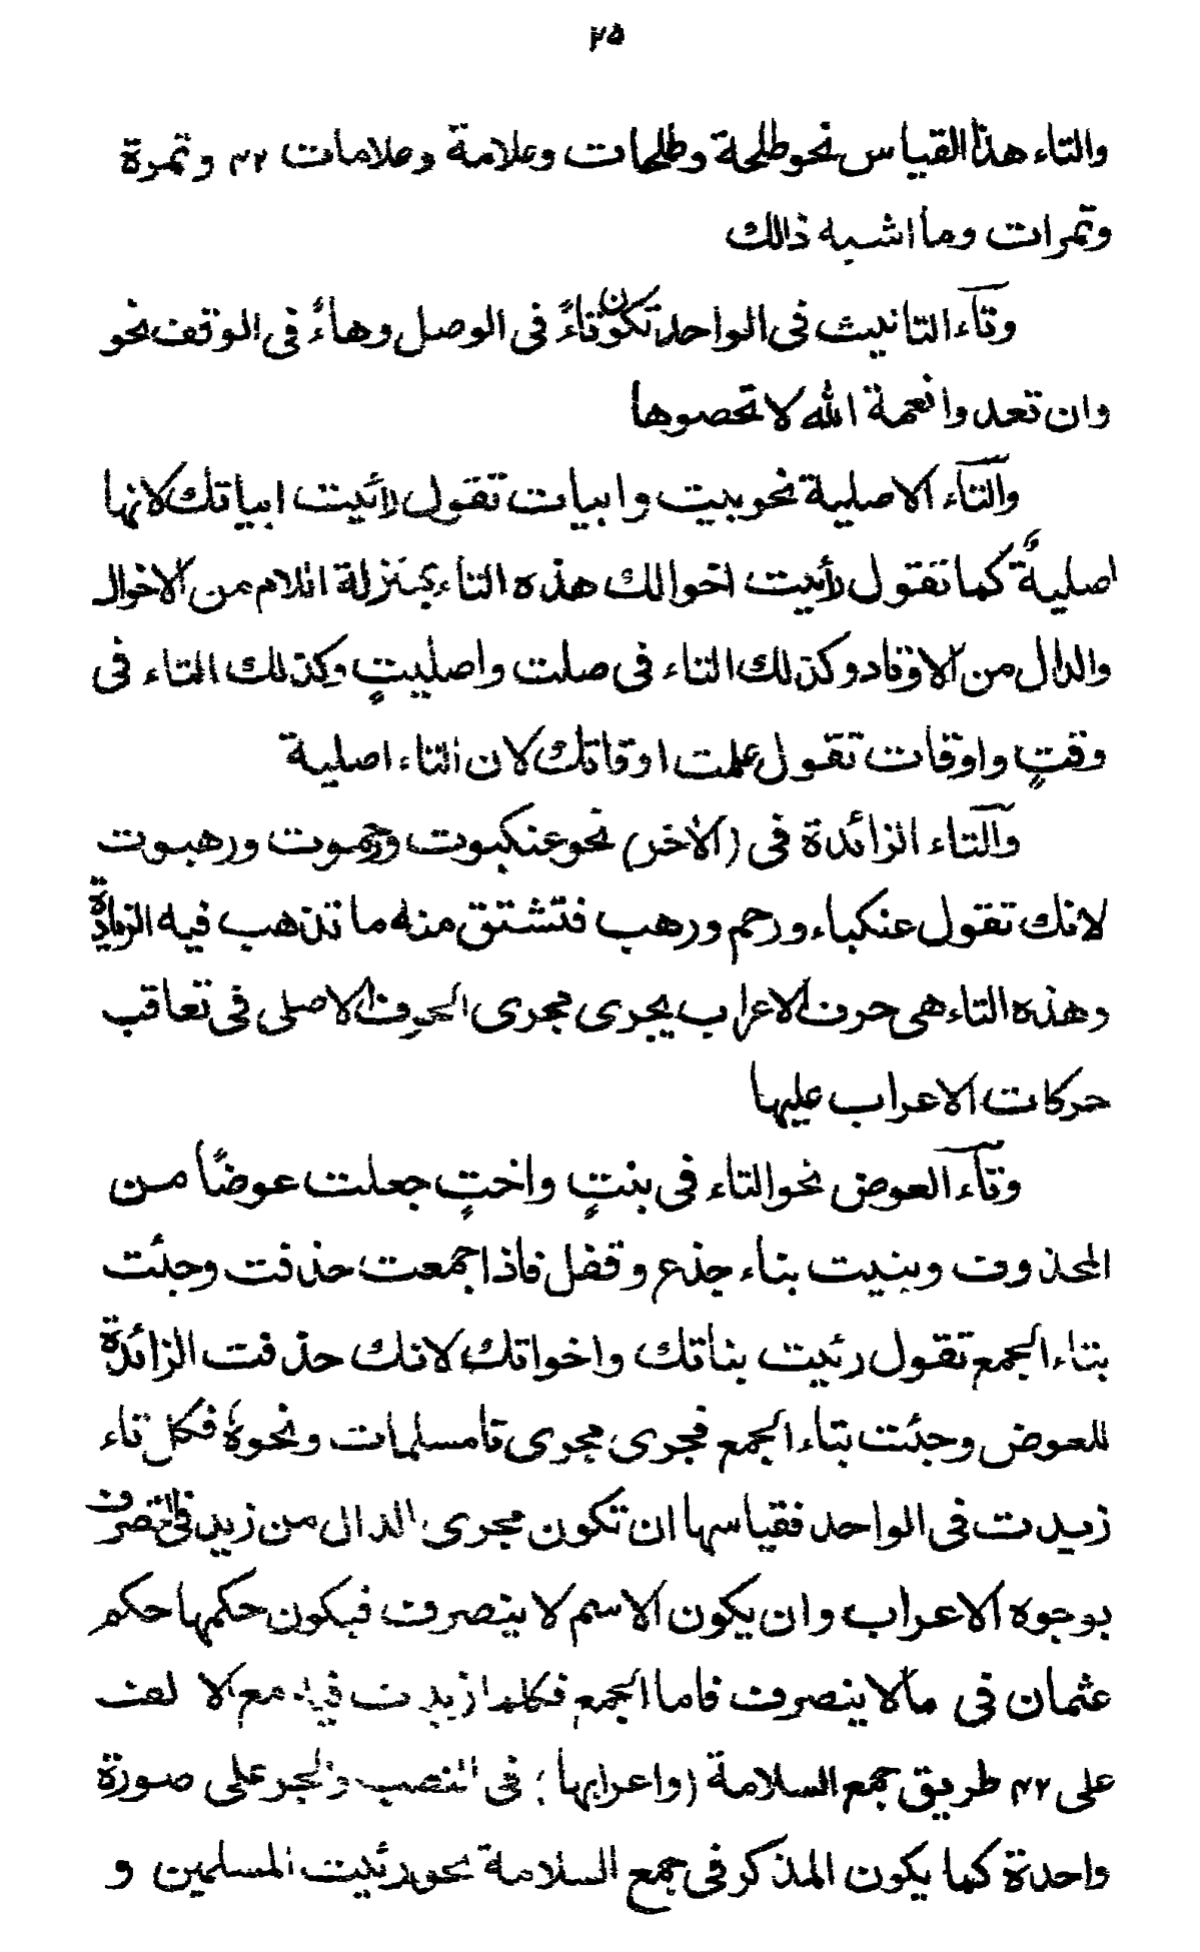 ٢٥
والتاء هذا القياس نحو طلحة وطلحات وعلامة وعلامات ٤٢ وتمرة
وتمرات وما اشبه ذالك
وتآء التانيث فى الواحد تكون تاءً فى الوصل وهاءً فى الوقف نحو
وان تعدوا نعمة الله لا تحصوها
والتآء الاصلية نحو بيت وابيات تقول رأئيت ابياتك لانها
اصليةٌ كما تقول رأئيت اخوالك هذه التاء بمنزلة اللام من الاخوال
والدال من الاوتاد وكذلك التاء فى صلت واصليتٍ وكذلك التاء فى
وقتٍ واوقات تقول علمت اوقاتك لان التاء اصلية
والتآء الزائدة فى (الأخر) نحو عنكبوت ورحموت ورهبوت
لانك تقول عنكباء ورحم ورهب فتشتق منه ما تذهب فيه الزيادة
وهذه التاء هى حرف الاعراب يجرى مجرى الحرف الاصلى فى تعاقب
حركات الاعراب عليها
وتآء العوض نحو التاء فى بنتٍ واختٍ جعلت عوضًا من
المحذوف وبنيت بناء جذع وقفل فاذا جمعت حذفت وجئت
بتاء الجمع تقول رئيت بناتك واخواتك لانك حذفت الزائدة
للعوض وجئت بتاء الجمع فجرى مجرى تا مسلمات ونحوهُ فكل تاء
زيدت فى الواحد فقياسها ان تكون مجرى الدال من زيد فى التصرف
بوجوه الاعراب وان يكون الاسم لا ينصرف فيكون حكمها حكم
عثمان فى مالا ينصرف فاما الجمع فكلما زيدت فيه مع الا لف
على ٤٢ طريق جمع السلامة (واعرابها ؛ فى النصب والجر على صورة
واحدة كما يكون المذكر فى جمع السلامة نحو رئيت المسلمين و